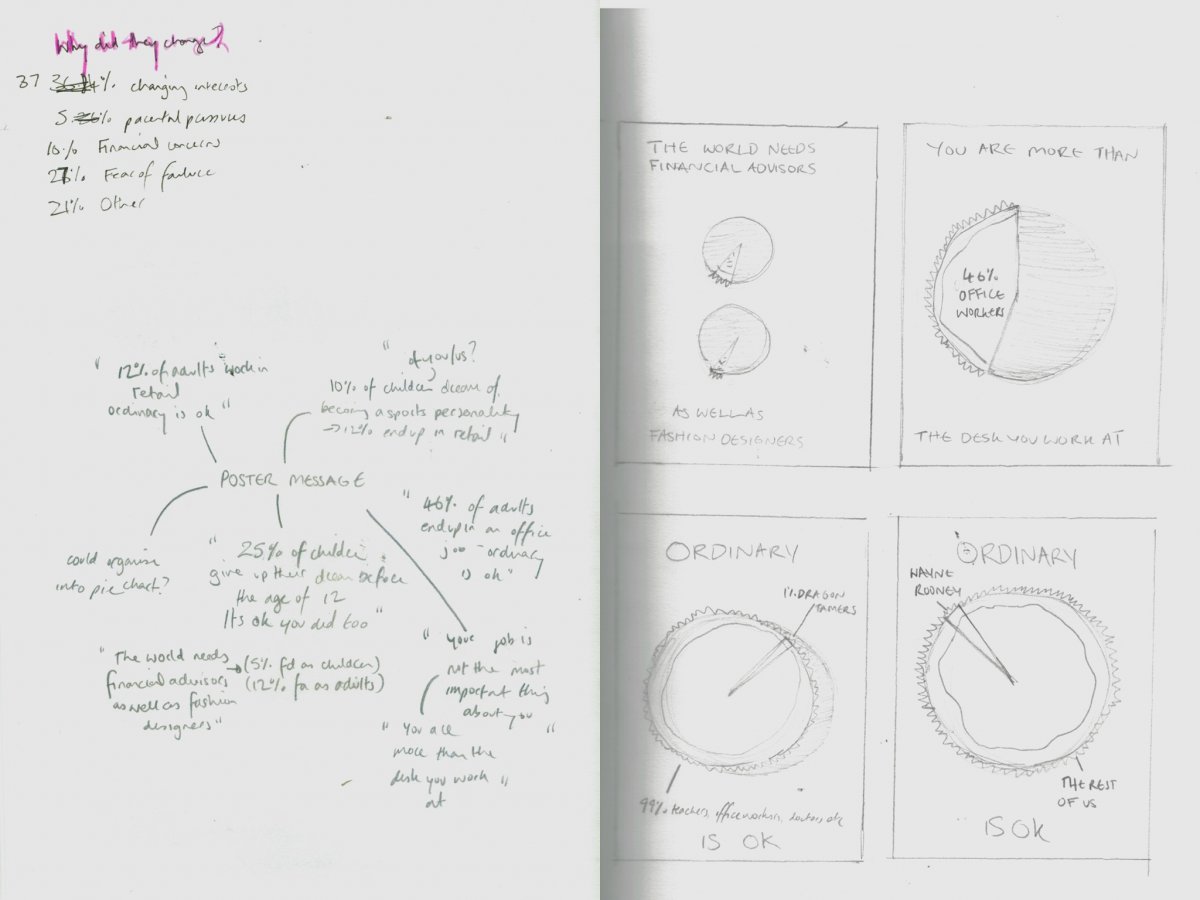 Why did they change?
37% changing interests
5% parental pressures
10% Financial concerns
27% Fear of failure
21% Other
"12% of adults work in
retail
ordinary is ok"
"of you/us?
10% of children dream of
becoming a sports personality
→ 12% end up in retail"
POSTER MESSAGE
could organise
into pie chart?
"25% of children
give up their dream before
the age of 12
It's ok you did too"
"46% of adults
end up in an office
job - ordinary
is ok"
"The world needs
financial advisors
as well as fashion
designers"
→ (5% fd as children)
(12% fa as adults)
"your job is
not the most
important thing
about you"
"You are
more than the
desk you work
at"
THE WORLD NEEDS
FINANCIAL ADVISORS
AS WELL AS
FASHION DESIGNERS
YOU ARE MORE THAN
46%
OFFICE
WORKERS
THE DESK YOU WORK AT
ORDINARY
1% DRAGON
TAMERS
99% teachers, office workers, doctors etc
IS OK
ORDINARY
WAYNE
ROONEY
THE REST
OF US
IS OK